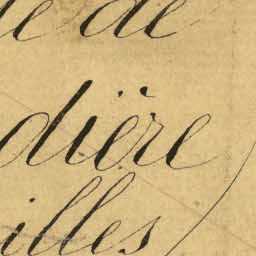 de
dière
illes